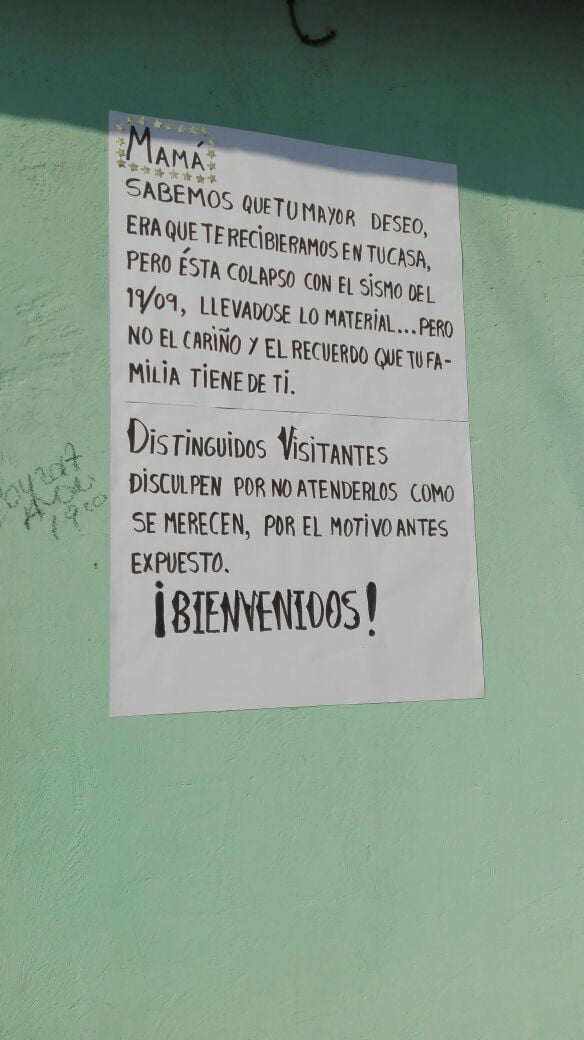 MAMÁ
SABEMOS QUE TU MAYOR DESEO,
ERA QUE TE RECIBIERAMOS EN TU CASA,
PERO ÉSTA COLAPSO CON EL SISMO DEL
19/09, LLEVADOSE LO MATERIAL...PERO
NO EL CARIÑO Y EL RECUERDO QUE TU FA-
MILIA TIENE DE TI.
DISTINGUIDOS VISITANTES
DISCULPEN POR NO ATENDERLOS COMO
SE MERECEN, POR EL MOTIVO ANTES
EXPUESTO.
¡BIENVENIDOS!